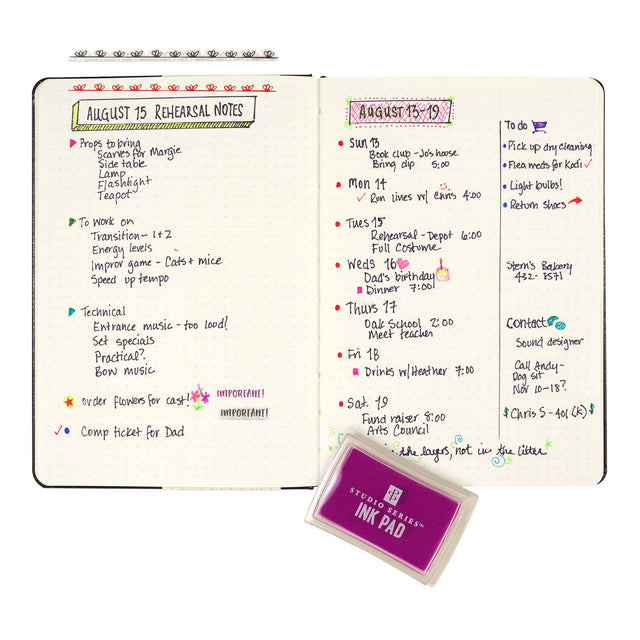 AUGUST 15 REHEARSAL NOTES
Props to bring
Scarves for Margie
Side table
Lamp
Flashlight
Teapot
To Work on
Transition - 1+2
Energy levels
Improv game - Cats + mice
Speed up tempo
Technical
Entrance music - too loud!
Set specials
Practical?
Bow music
order flowers for cast!
IMPORTANT!
IMPORTANT!
Comp ticket for Dad
AUGUST 13-19
Sun 13
Book club - Jo's house
Bring dip 5:00
Mon 14
Run lines w/ Chris 4:00
Tues 15
Rehearsal - Depot 6:00
Full Costume
Weds 16
Dad's birthday
Dinner 7:00!
Thurs 17
Oak School 2:00
Meet teacher
Fri 18
Drinks w/ Heather 7:00
Sat. 19
Fund raiser 8:00
Arts Council
the layers, not in the litter
To do
Pick up dry cleaning
Flea meds for Kodi
Light bulbs!
Return shoes
Stern's Bakery
432-8571
Contact
Sound designer
Call Andy-
Dog sit
Nov 10-18?
$ Chris S - 401(K) $
STUDIO SERIES™
INK PAD